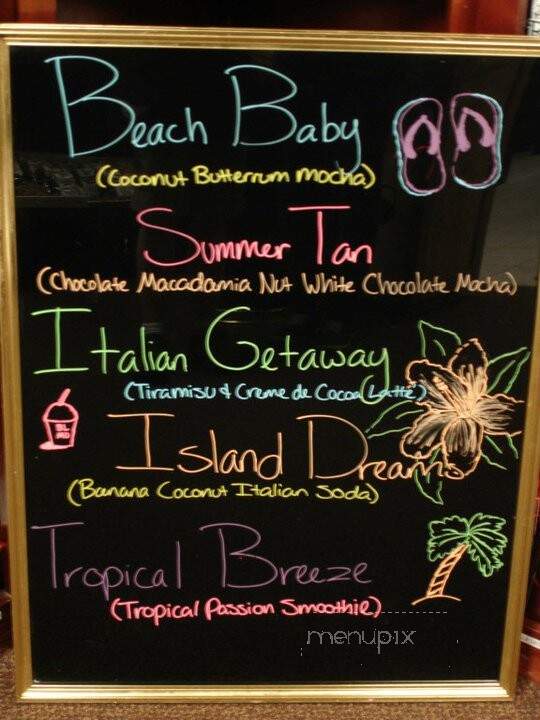 Beach Baby
(Coconut Butterrum mocha)
Summer Tan
(Chocolate Macadamia Nut White Chocolate Mocha)
Italian Getaway
(Tiramisu & Creme de Cocoa Latte)
Island Dreams
(Banana Coconut Italian Soda)
Tropical Breeze
(Tropical Passion Smoothie)
menupix